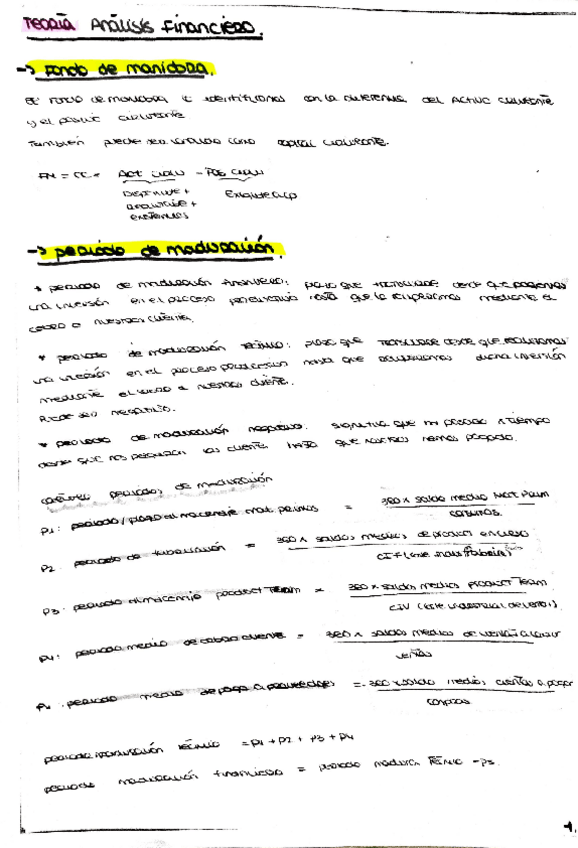 TEORIA ANÁLISIS FINANCIERO.
→ FONDO DE MANIOBRA.
El fondo de maniobra lo identificamos con la diferencia del Activo corriente
y el pasivo corriente
También puede ser conocido como capital corriente.
FM = CC = Act corr - Pas corr
Disponible + Exigible c/p
Realizable +
existencias
→ periodo de maduración.
* periodo de maduración financiero: plazo que transcurre desde que pagamos
una inversión en el proceso productivo hasta que la recuperamos mediante el
cobro a nuestros clientes.
* periodo de maduración técnico: plazo que transcurre desde que realizamos
una inversión en el proceso hasta que recuperamos dicha inversión
mediante el cobro a nuestros clientes.
Puede ser negativo.
* periodo de maduración negativo. Significa que ha pasado tiempo
desde que nos pagan los clientes hasta que nosotros hemos pagado.
periodos de maduración
P1: periodo/plazo almacenaje mat primas = 360 x saldo medio Mat Prim
consumos.
P2. periodo de fabricación = 360 x saldos medios de product en curso
CIF
P3. periodo almacenaje product Term = 360 x saldos medios product Term
CIV (coste industrial de ventas)
P4: periodo medio de cobro cliente = 360 x saldos medios de cuentas a cobrar
ventas
periodo medio de pago a proveedores = 360 x saldo medios cuentas a pagar
compras
periodo maduración técnico = P1 + P2 + P3 + P4
periodo maduración financiero = periodo madurac técnico - P5.
1.